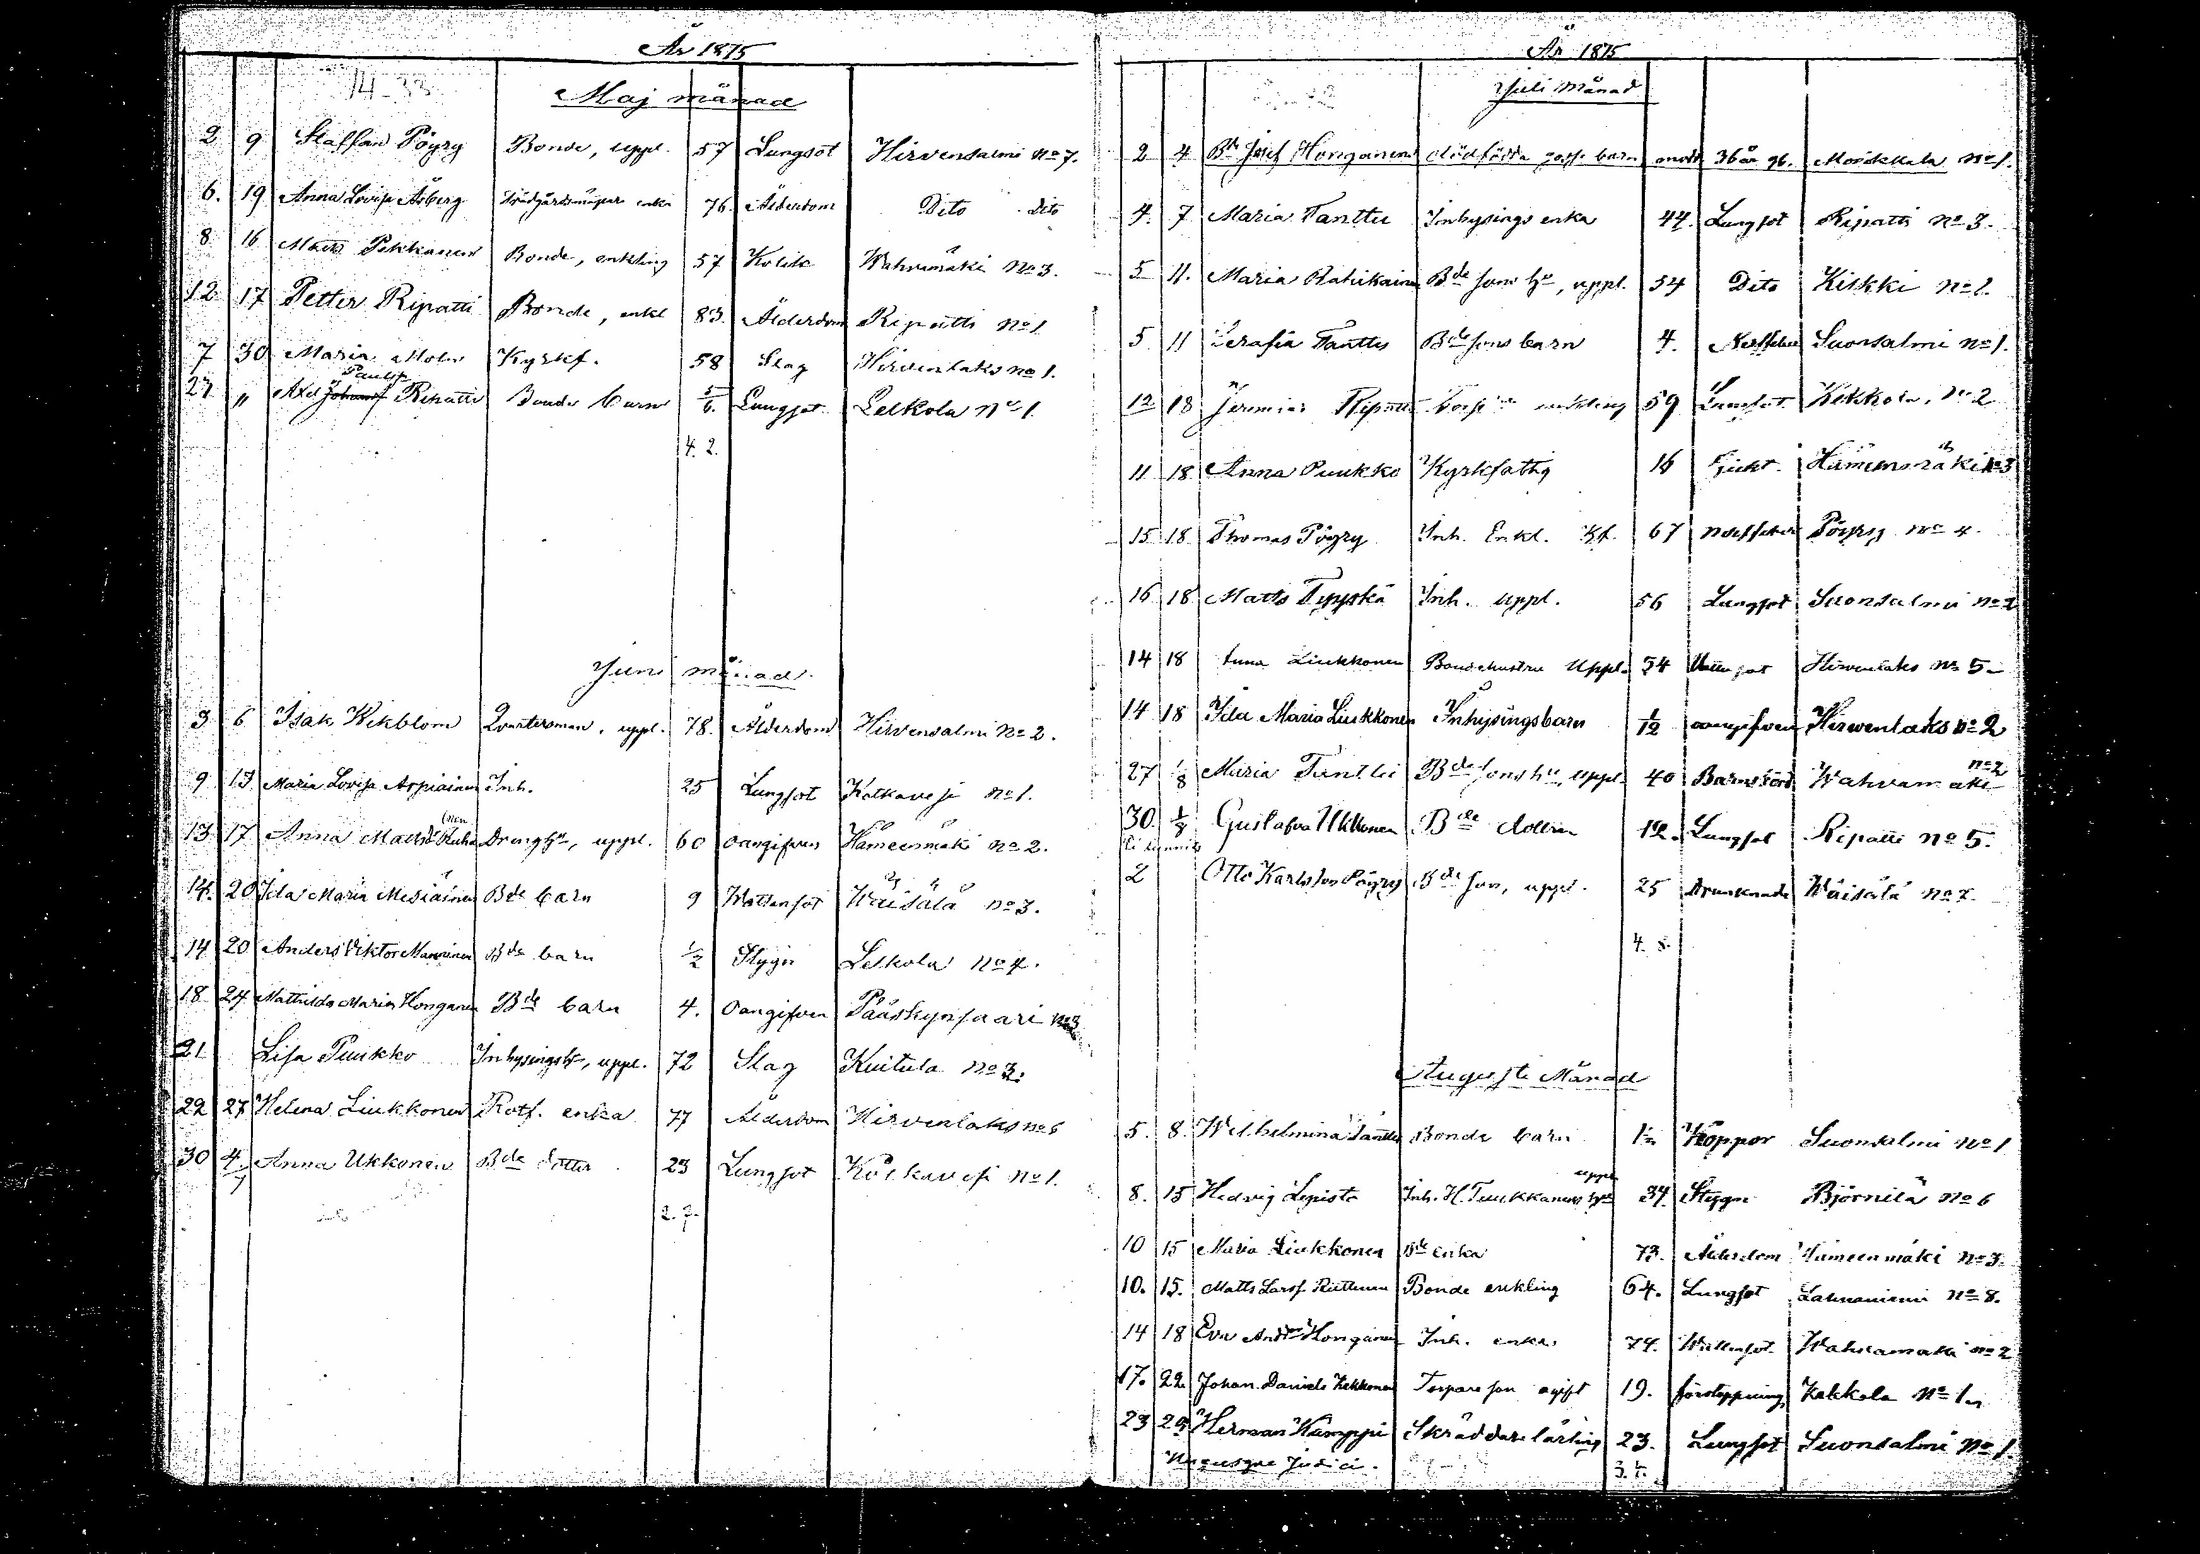 År 1875
14-33
Maj månad
2 9 Staffan Pöyry Bonde, uppl. 57 Lungsot Hirvensalmi No 7.
6. 19 Anna Lovisa Åberg enka 76. Ålderdom Dito dito
8 16 Matts Pekkanen Bonde, enkling 57 Kolik Wahvamäki No 3.
12 17 Petter Ripatti Bonde, enkl 83. Ålderdom Ripatti No 1.
7 30 Maria Molin Kyrkf. 58 Slag Hirvenlaks No 1.
Paulsf
27 " Axel Johansf Ripatti Bonde barn 5/6. Lungsot Lelkola No 1.
4. 2.
Juni månad.
3 6 Isak Wikblom Qvartersman, uppl. 78. Ålderdom Hirvensalmi No 2.
9 13 Maria Lovisa Arpiainen Inh. 25 Lungsot Kotkavesi No 1.
13 17 Anna Drenghu, uppl. 60 oangifven Hämeenmäki No 2.
14. 20 Ida Maria Mesiäinen Bde barn 9 Wattensot Wäisälä No 3.
14 20 Anders Viktor Manninen Bde barn 1/2 Stygn Lelkola No 4.
18 24 Mathilda Maria Honganen Bde barn 4. Oangifven Pääskynsaari No 3
21 Lisa Puukko Inhysingshu, uppl. 72 Slag Kuitula No 3.
22 27 Helena Liukkonen Rotf. enka 77 Ålderdom Hirvenlaks No 6
30 4/7 Anna Ukkonen Bde dotter 23 Lungsot Kotkavesi No 1.
2. 7.
År 1875
Juli Månad
2 4 Bde Josef Honganens dödfödda gosse barn modr 36 år gl. Monikkala No 1.
4. 7 Maria Tanttu Inhysings enka 44. Lungsot Ripatti No 3.
5 11. Maria Rahikainen Bde sons hu, uppl. 54 Dito Kiskki No 2.
5. 11 Serafia Tanttu Bde sons barn 4. Nerffeber Suonsalmi No 1.
12 18 Jeremias Ripatti enkling 59 Lungsot Kekkola, No 2
11 18 Anna Puukko Kyrkfattig 16 Gickt. Hämeenmäki No 3
15 18 Thomas Pöyry Inh. Enkl. Kf. 67 Nerffeber Pöyry No 4.
16 18 Matts Tyyskä Inh. uppl. 56 Lungsot Suonsalmi No 2
14 18 Anna Liukkonen Bondehustru Uppl. 54 Wattensot Hirvenlaks No 5.
14 18 Ida Maria Liukkonen Inhysingsbarn 1/12 oangifven Hirwenlaks No 2
27 1/8 Maria Tanttu Bde sons hu, uppl. 40 Barnsbörd Wahvamäki No 2
30. 1/8 Gustafva Ukkonen Bde dotter 12. Lungsot Ripatti No 5.
2 Otto Karlsson Pöyry Bde son, uppl. 25 Drunknade Wäisälä No 7.
4. 8.
Augusti Månad
5. 8. Wilhelmina Tanttu Bonde barn 1 1/2 Koppor Suonsalmi No 1
8. 15 Hedvig Lepistö Inh. H. Tuukkanens hu uppl. 34. Stygn Björnilä No 6
10 15 Maria Liukkonen Bde enka 73. Ålderdom Hämeenmäki No 3.
10. 15. Matts Larsf Bonde enkling 64. Lungsot Lahnaniemi No 8.
14 18 Eva Honganen Inh. enka 74. Wattensot Wahvamäki No 2
17. 22. Johan Daniels Kekkonen Torpare son ogift 19. förstoppning Kekkola No 1.
23 29 Herman Kamppi Skräddare lärling 23. Lungsot Suonsalmi No 1.
3. 4.